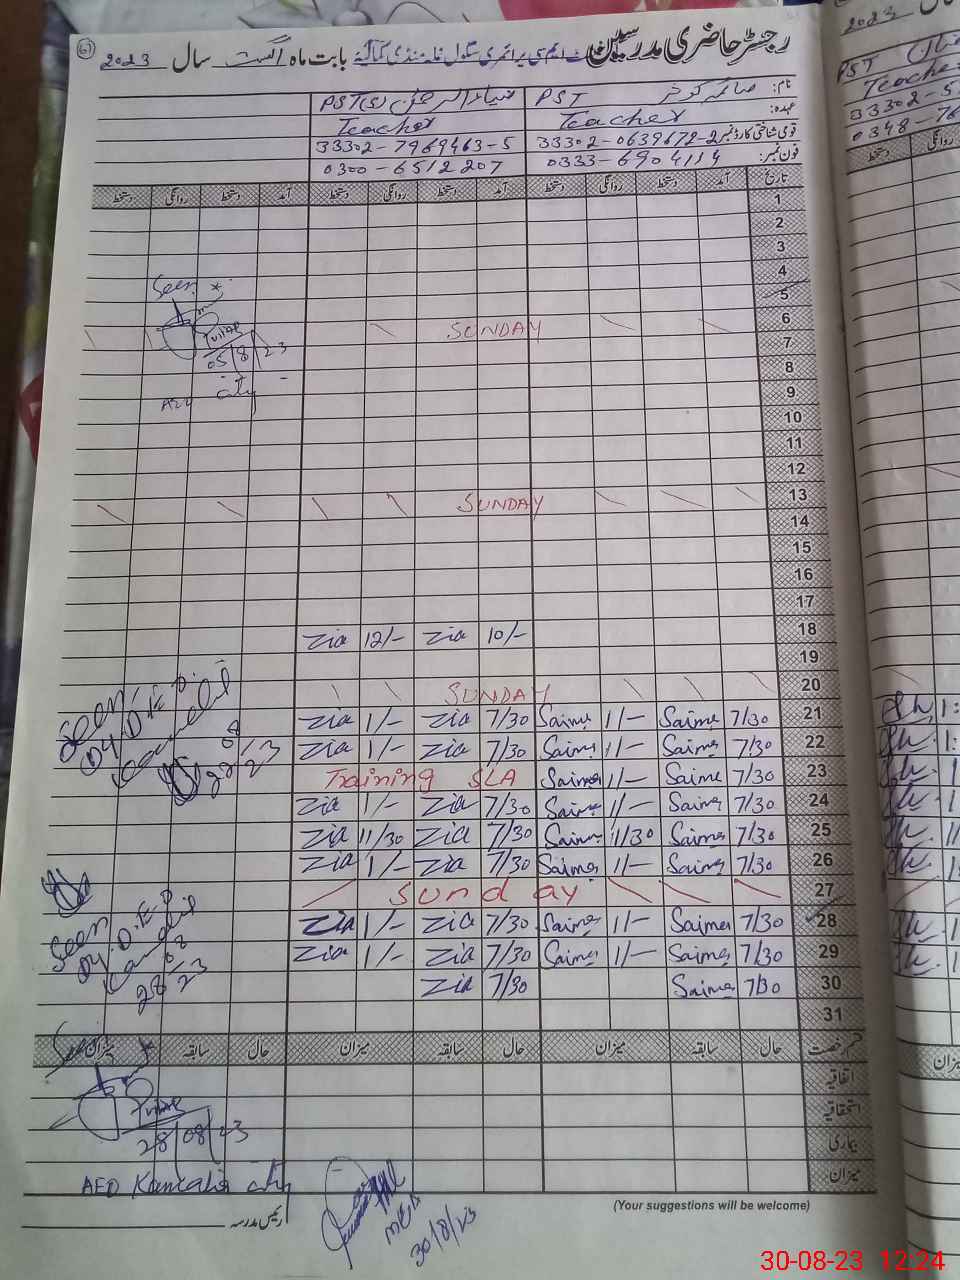 رجسٹر حاضری مدرسین ایم سی پرائمری سکول غلہ منڈی کمالیہ بابت ماہ اگست سال 2023
نام: صائمہ کوثر PST ضیاء الرحمٰن PST(S)
عہدہ: Teacher Teacher
قومی شناختی کارڈ نمبر 33302-0639672-2 33302-7969463-5
فون نمبر: 0333-6904114 0300-6512207
تاریخ آمد دستخط روانگی دستخط آمد دستخط روانگی دستخط آمد دستخط روانگی دستخط
1
2
3
4
5
6 SUNDAY
7
8
9
10
11
12
13 SUNDAY
14
15
16
17
18 10/- Zia 12/- Zia
19
20 SUNDAY
21 7/30 Saima 1/- Saima 7/30 Zia 1/- Zia
22 7/30 Saima 1/- Saima 7/30 Zia 1/- Zia
23 7/30 Saima 1/- Saima Training SLA
24 7/30 Saima 1/- Saima 7/30 Zia 1/- Zia
25 7/30 Saima 11/30 Saima 7/30 Zia 11/30 Zia
26 7/30 Saima 1/- Saima 7/30 Zia 1/- Zia
27 Sunday
28 7/30 Saima 1/- Saima 7/30 Zia 1/- Zia
29 7/30 Saima 1/- Saima 7/30 Zia 1/- Zia
30 7/30 Saima 7/30 Zia
31
قسم رخصت حال سابقہ میزان حال سابقہ میزان حال سابقہ میزان
اتفاقیہ
استحقاقیہ
بیماری
میزان
Seen
05/8/23
city
Seen
Dy.D.E.O
Kamalia
22/8/23
Seen
Dy.D.E.O
Kamalia
28/8/23
28/08/23
AEO Kamalia city
MEA
30/8/23
رئیس مدرسہ
(Your suggestions will be welcome)
2023
PST
Teacher
33302-5
0348-76
30-08-23 12:24